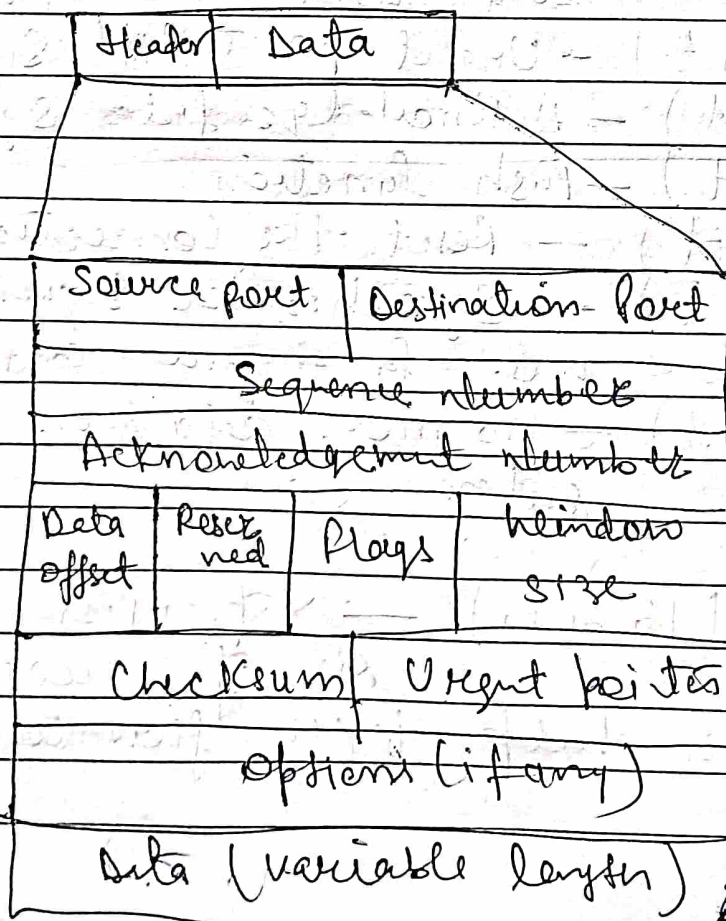 Header Data
Source port Destination Port
Sequence Number
Acknowledgement Number
Data offset Reser ved Flags Window size
Checksum Urgent pointer
Options (if any)
Data (variable length)